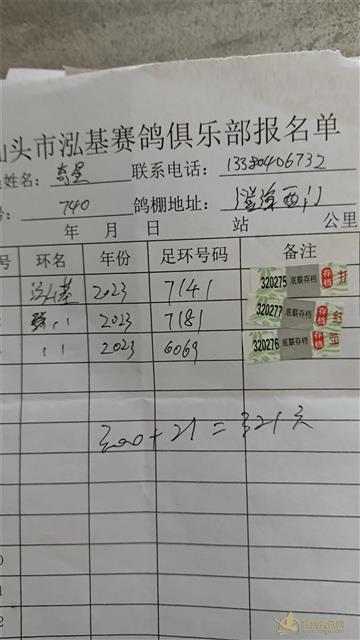 汕头市泓基赛鸽俱乐部报名单
姓名: 联系电话: 13380406732
号: 740 鸽棚地址:
年 月 日 站 公里
号 环名 年份 足环号码 备注
泓基 2023 7141 320275 底联存档 存档
〃 2023 7181 320277 底联存档 存档
〃 2023 6069 320276 底联存档 存档
300+21=321元
0
1
2